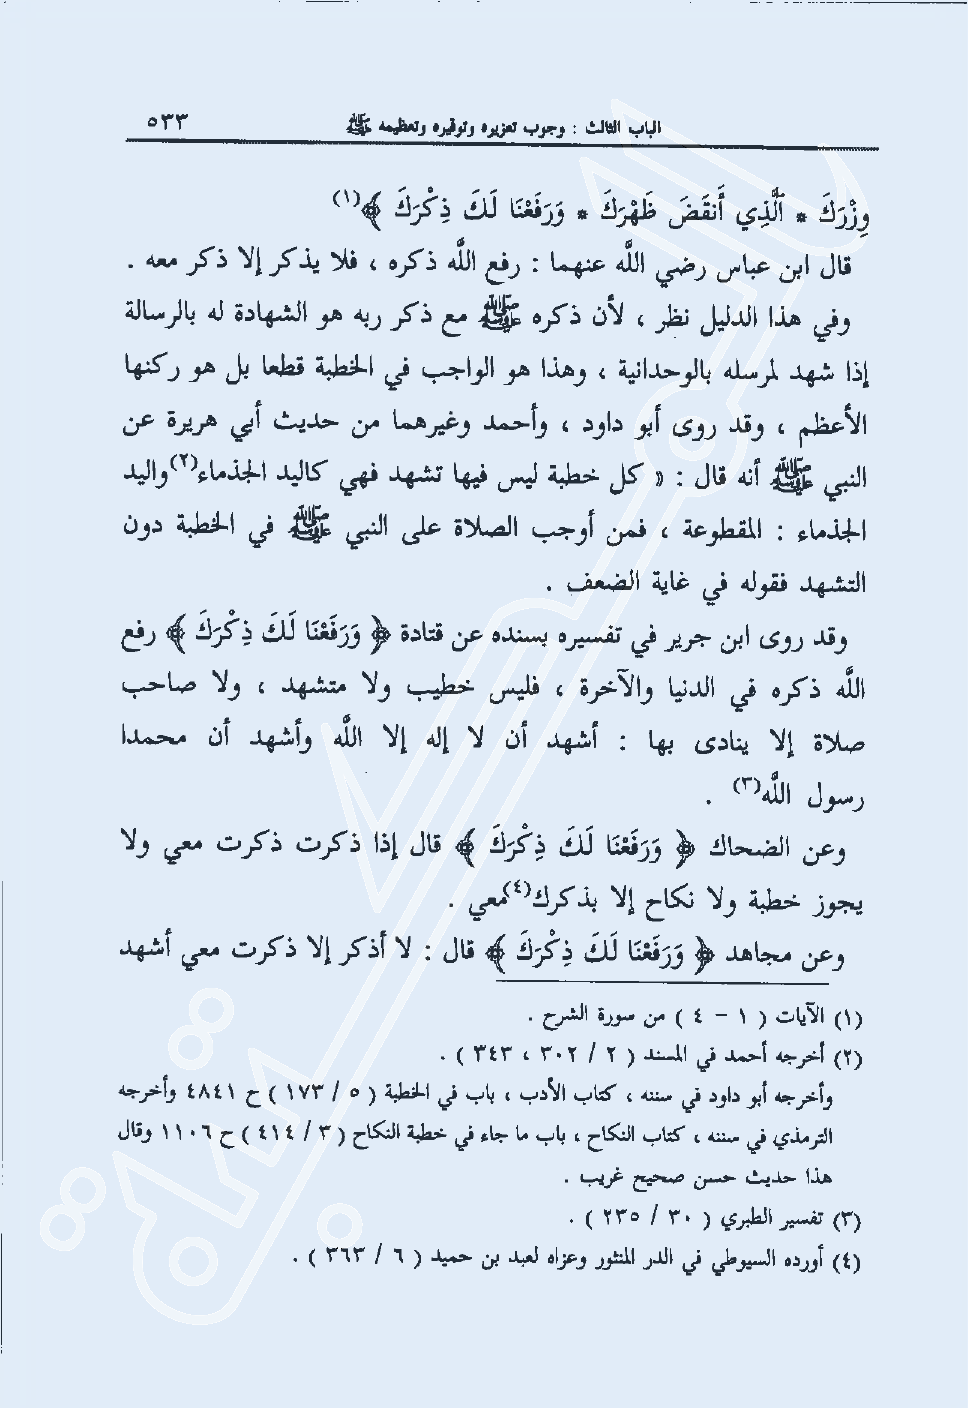 الباب الثالث : وجوب تعزيره وتوقيره وتعظيمه ﷺ ٥٣٣
وِزْرَكَ * ٱلَّذِي أَنقَضَ ظَهْرَكَ * وَرَفَعْنَا لَكَ ذِكْرَكَ ﴾(١)
قال ابن عباس رضي اللَّه عنهما : رفع اللَّه ذكره ، فلا يذكر إلا ذكر معه .
وفي هذا الدليل نظر ، لأن ذكره ﷺ مع ذكر ربه هو الشهادة له بالرسالة
إذا شهد لمرسله بالوحدانية ، وهذا هو الواجب في الخطبة قطعا بل هو ركنها
الأعظم ، وقد روى أبو داود ، وأحمد وغيرهما من حديث أبي هريرة عن
النبي ﷺ أنه قال : « كل خطبة ليس فيها تشهد فهي كاليد الجذماء(٢)واليد
الجذماء : المقطوعة ، فمن أوجب الصلاة على النبي ﷺ في الخطبة دون
التشهد فقوله في غاية الضعف .
وقد روى ابن جرير في تفسيره بسنده عن قتادة ﴿ وَرَفَعْنَا لَكَ ذِكْرَكَ ﴾ رفع
اللَّه ذكره في الدنيا والآخرة ، فليس خطيب ولا متشهد ، ولا صاحب
صلاة إلا ينادى بها : أشهد أن لا إله إلا اللَّه وأشهد أن محمدا
رسول اللَّه(٣) .
وعن الضحاك ﴿ وَرَفَعْنَا لَكَ ذِكْرَكَ ﴾ قال إذا ذكرت ذكرت معي ولا
يجوز خطبة ولا نكاح إلا بذكرك(٤)معي .
وعن مجاهد ﴿ وَرَفَعْنَا لَكَ ذِكْرَكَ ﴾ قال : لا أذكر إلا ذكرت معي أشهد
(١) الآيات ( ١ - ٤ ) من سورة الشرح .
(٢) أخرجه أحمد في المسند ( ٢ / ٣٠٢ ، ٣٤٣ ) .
وأخرجه أبو داود في سننه ، كتاب الأدب ، باب في الخطبة ( ٥ / ١٧٣ ) ح ٤٨٤١ وأخرجه
الترمذي في سننه ، كتاب النكاح ، باب ما جاء في خطبة النكاح ( ٣ / ٤١٤ ) ح ١١٠٦ وقال
هذا حديث حسن صحيح غريب .
(٣) تفسير الطبري ( ٣٠ / ٢٣٥ ) .
(٤) أورده السيوطي في الدر المنثور وعزاه لعبد بن حميد ( ٦ / ٣٦٣ ) .